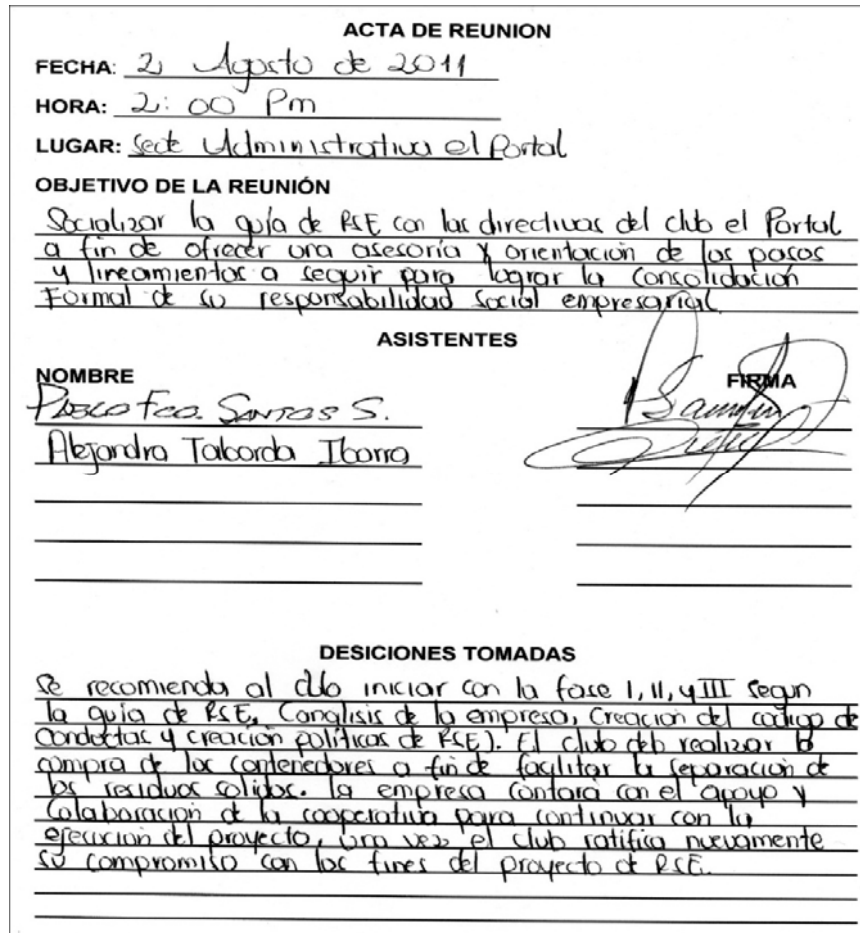 ACTA DE REUNION
FECHA: 2 Agosto de 2011
HORA: 2:00 Pm
LUGAR: Sede Administrativa el Portal
OBJETIVO DE LA REUNIÓN
Socializar la guía de RSE con las directivas del club el Portal
a fin de ofrecer una asesoría y orientación de los pasos
y lineamientos a seguir para lograr la Consolidación
Formal de su responsabilidad social empresarial.
ASISTENTES
NOMBRE FIRMA
Pablo Fco. Santos S.
Alejandra Taborda Ibarra
DESICIONES TOMADAS
Se recomienda al club iniciar con la fase I, II, y III segun
la guia de RSE, (analisis de la empresa, Creacion del codigo de
Conductas y creación politicas de RSE). El club deb realizar la
compra de los contenedores a fin de facilitar la separación de
los residuos solidos. la empresa contara con el apoyo y
Colaboracion de la cooperativa para continuar con la
ejecucion del proyecto, una vez el club ratifica nuevamente
su compromiso con los fines del proyecto de RSE.